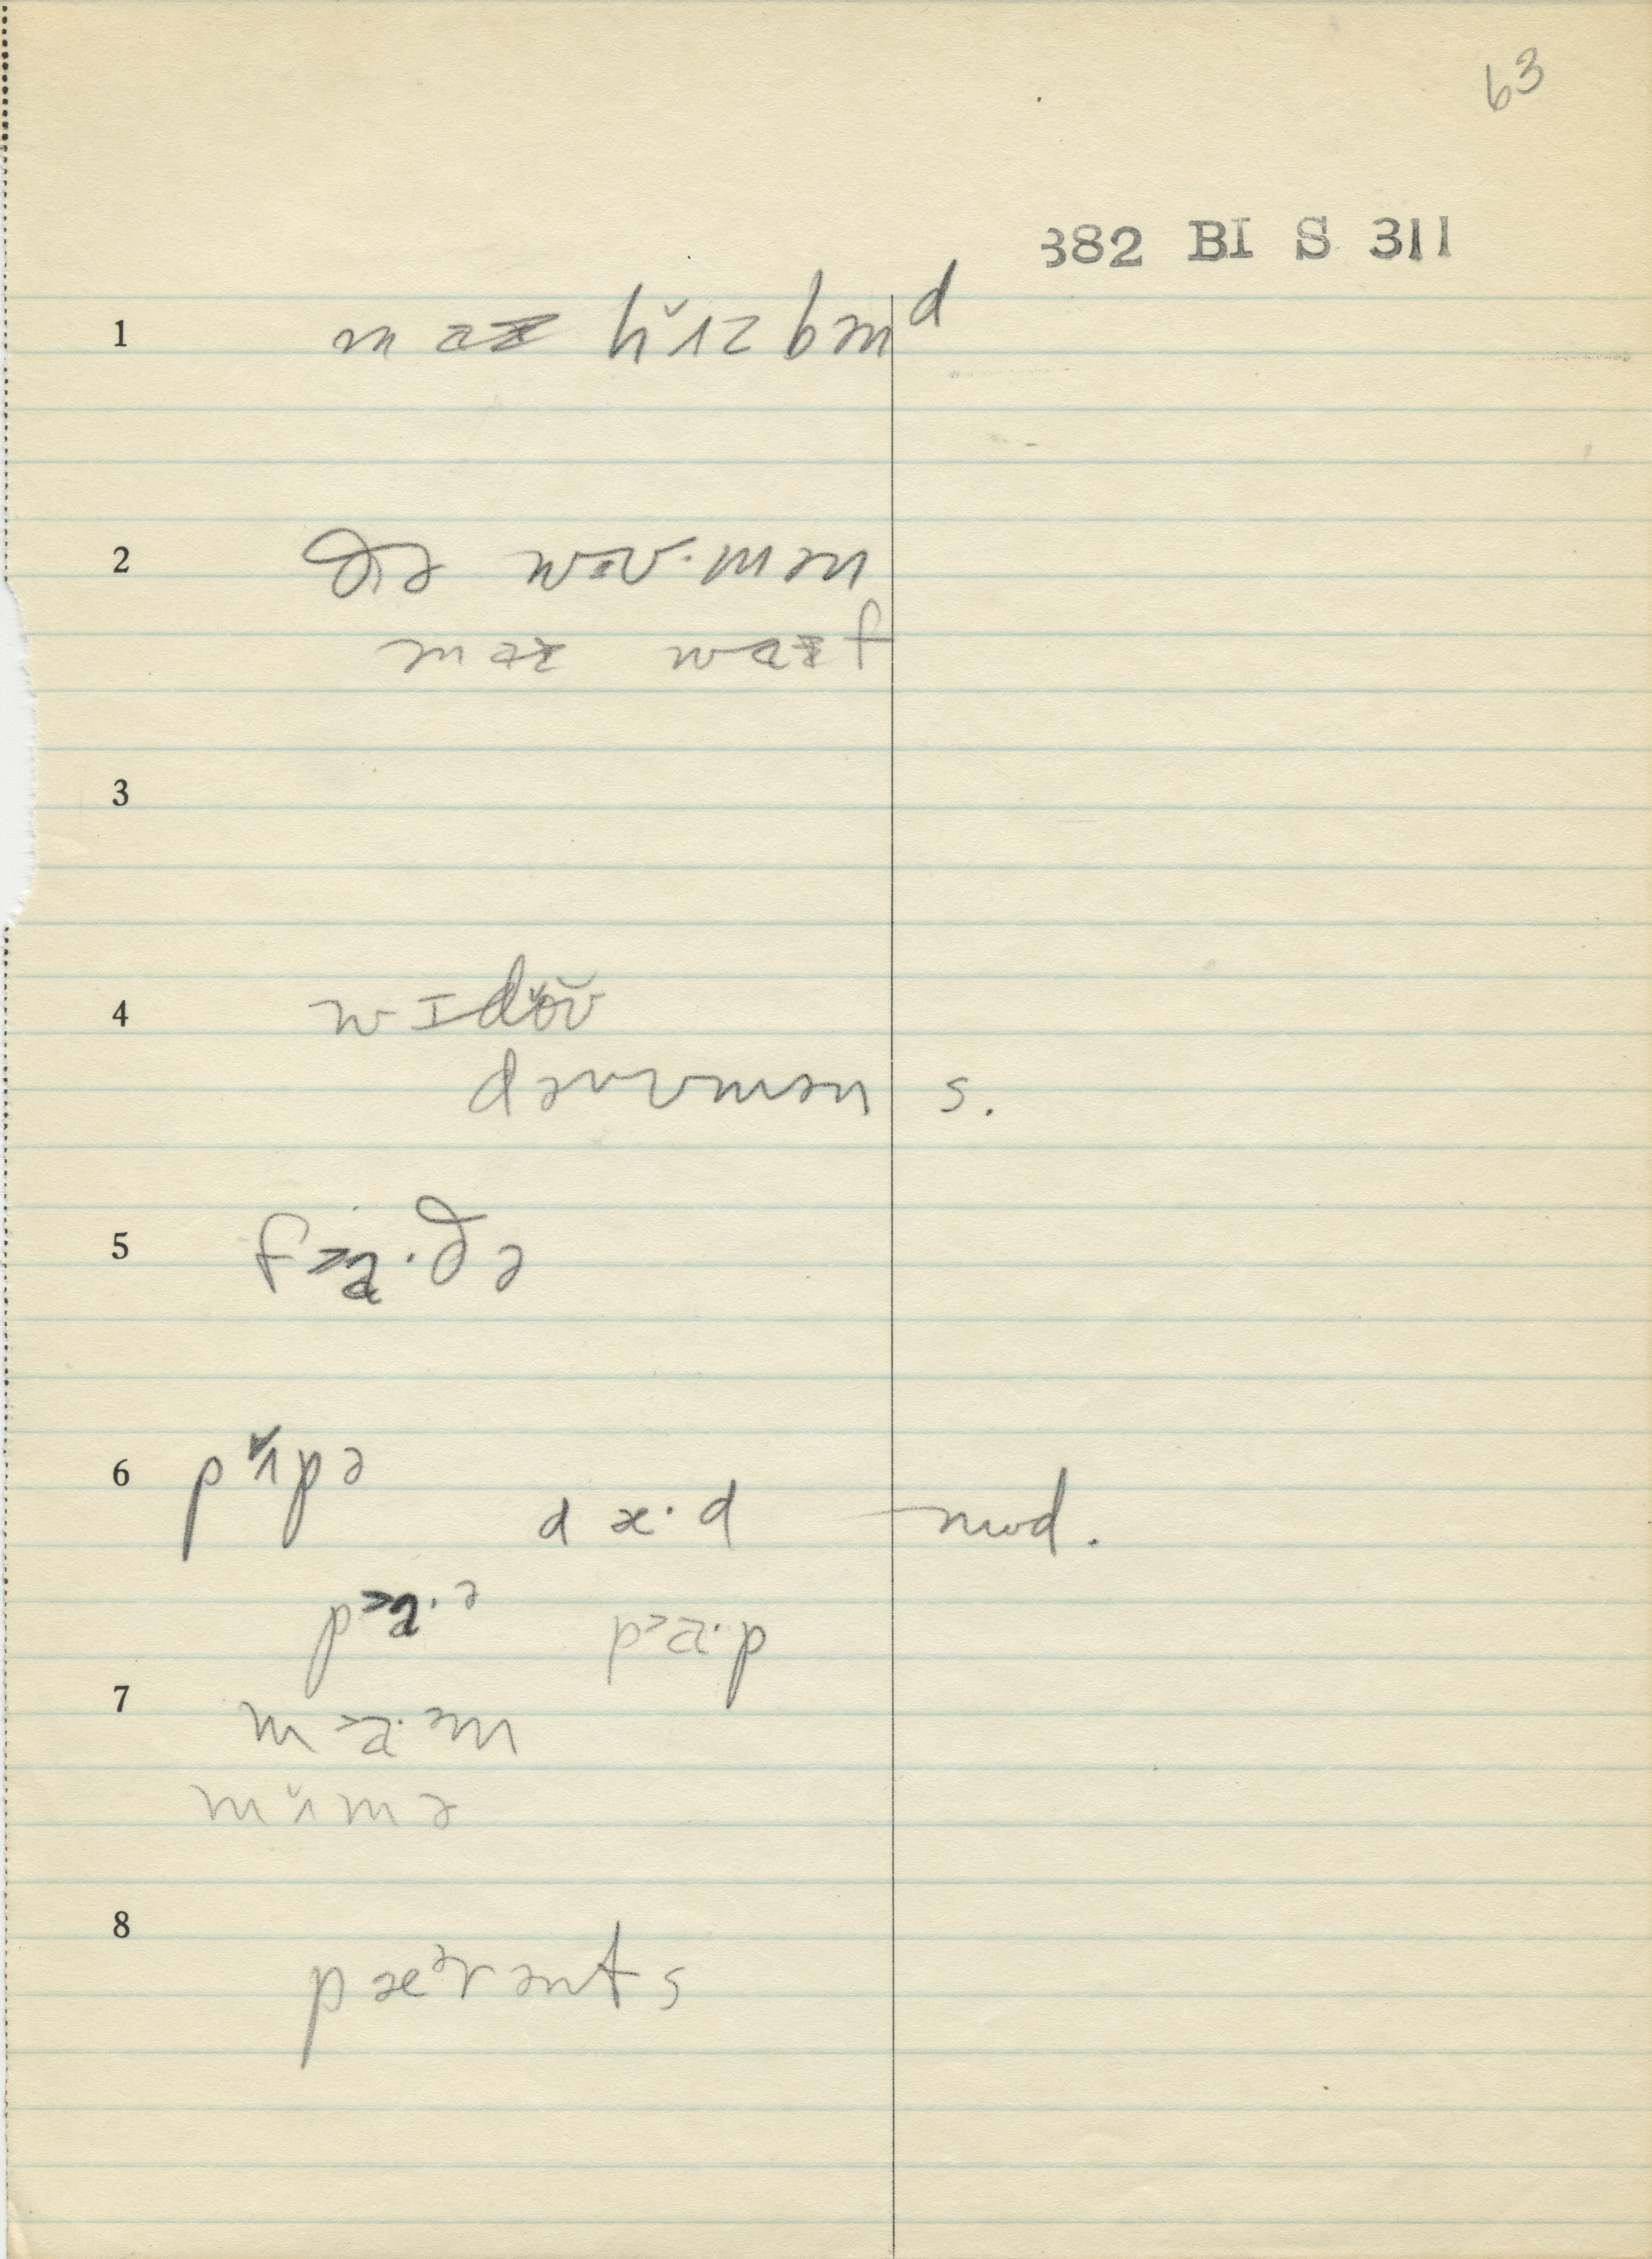 63
382 BI S 311
1 m aɨ hʌ̆zbən ᵈ
2 ðɪə wʊ·mən
maɨ waɨf
3
4 wɪdə̆ʊ̆
də wʊmən s.
5 f>a·ðə
6 pʌ̆pə
dæ·d mod.
p>a·ᵊ p>a·p
7 m>a·ᵊm
mʌ̆mə
8 pæᵊrənts